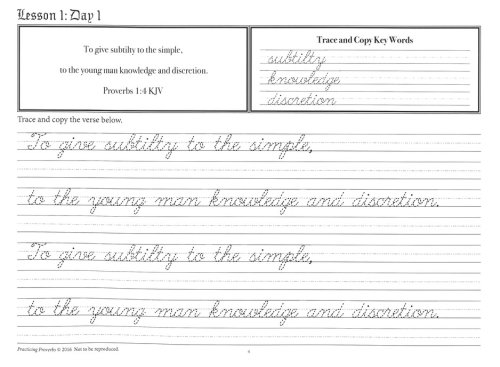 Lesson 1: Day 1
To give subtilty to the simple,
to the young man knowledge and discretion.
Proverbs 1:4 KJV
Trace and Copy Key Words
subtilty
knowledge
discretion
Trace and copy the verse below.
To give subtilty to the simple,
to the young man knowledge and discretion.
To give subtilty to the simple,
to the young man knowledge and discretion.
Practicing Proverbs © 2016 Not to be reproduced.